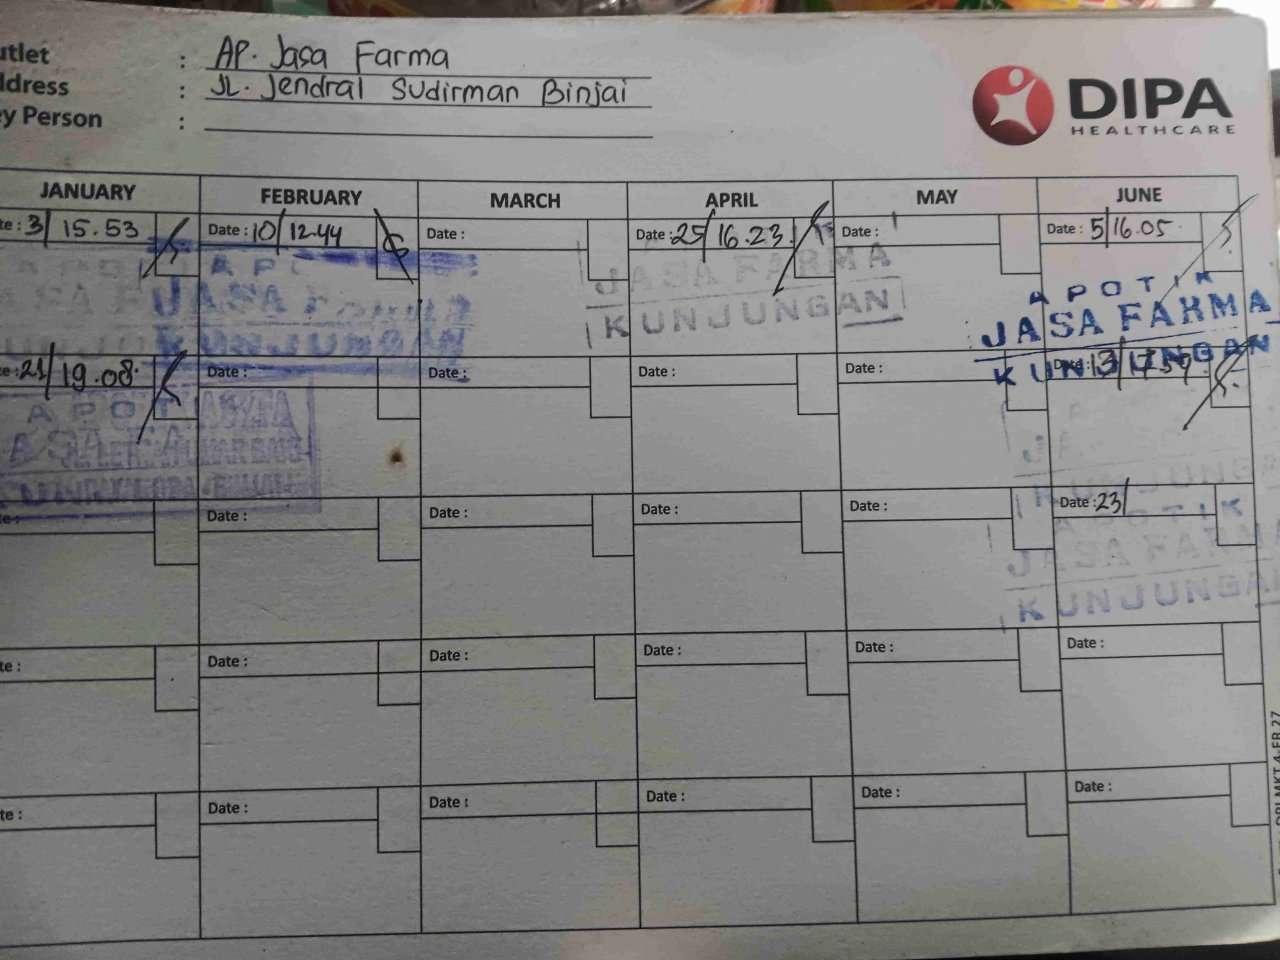 utlet : AP. Jasa Farma
ddress : JL. Jendral Sudirman Binjai
ey Person :
DIPA
HEALTHCARE
JANUARY FEBRUARY MARCH APRIL MAY JUNE
te : 3/ 15.53 Date : 10/ 12.44 Date : Date : 25/ 16.23 Date : Date : 5/ 16.05
APOTIK
JASA FARMA
KUNJUNGAN
JASA FARMA
KUNJUNGAN
APOTIK
JASA FARMA
KUNJUNGAN
te : 21/ 19.08 Date : Date : Date : Date : Date : 13/
KUNJUNGAN
te : Date : Date : Date : Date : Date : 23/
APOTIK
JASA FARMA
KUNJUNGAN
te : Date : Date : Date : Date : Date :
te : Date : Date : Date : Date : Date :